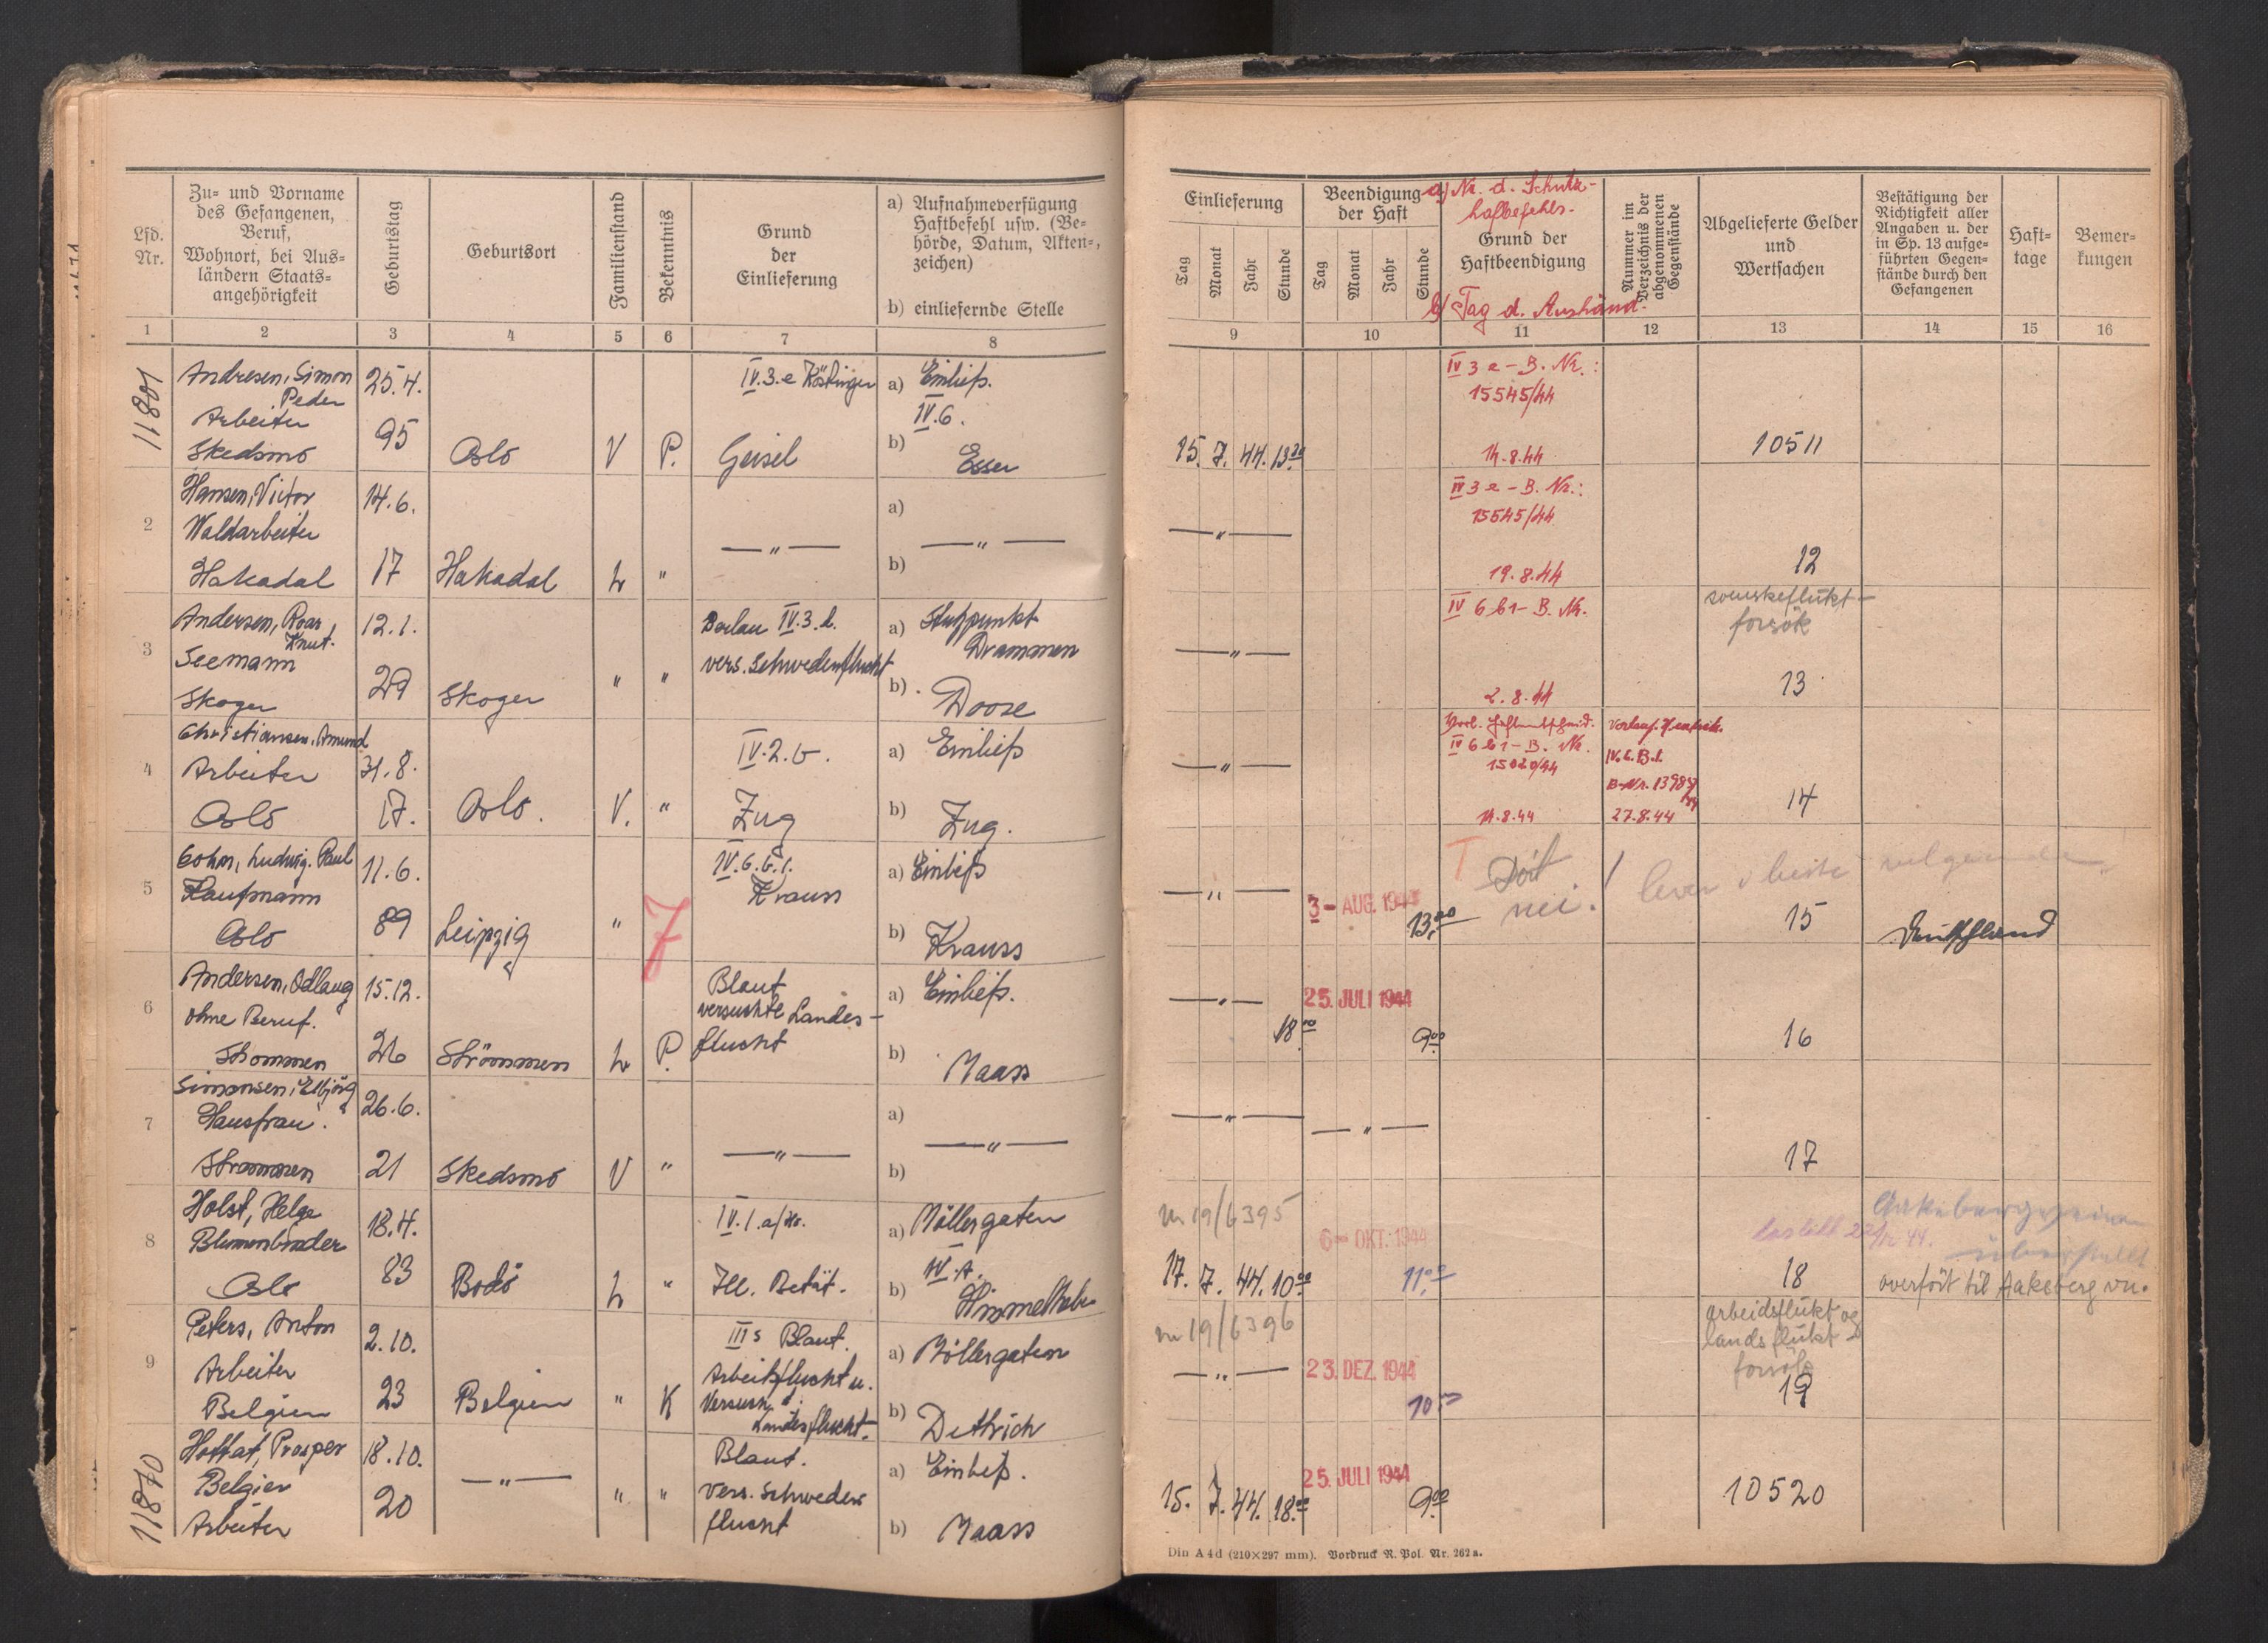 Lfd. Nr.
Zu- und Vorname des Gefangenen, Beruf, Wohnort, bei Ausländern Staatsangehörigkeit
Geburtstag
Geburtsort
Familienstand
Bekenntnis
Grund der Einlieferung
a) Aufnahmeverfügung Haftbefehl usw. (Behörde, Datum, Aktenzeichen)
b) einliefernde Stelle
1 2 3 4 5 6 7 8
11801
Andresen, Simon Peder
Arbeiter
Skedsmo
25.4.
95
Oslo
V
P.
IV.3.e
Geisel
a) Einließ.
IV.6.
b) Esser
2
Hansen, Victor
Waldarbeiter
Hakadal
14.6.
17
Hakadal
L
"
— " —
a)
— " —
b)
3
Andersen, Roar Knut.
Seemann
Skoger
12.1.
29
Skoger
"
"
IV.3.
vers. Schwedenflucht
a) Stützpunkt Drammen
b) Doose
4
Christiansen, Amund
Arbeiter
Oslo
31.8.
17.
Oslo.
V.
"
IV.2.b.
Zug
a) Einließ
b) Zug.
5
Cohn, Ludwig. Paul
Kaufmann
Oslo
11.6.
89
Leipzig
"
J
IV.6.b.1.
Krauss
a) Einließ
b) Krauss
6
Andersen, Odlaug
ohne Beruf.
Strommen
15.12.
26
Strömmen
L
P.
Blaut
versuchte Landes-
flucht
a) Einließ.
b) Maass
7
Simonsen, Elbjörg
Hausfrau.
Strommen
26.6.
21
Skedsmo
V
"
— " —
a)
— " —
b)
8
Holst, Helge
Blumenbinder
Oslo
18.4.
83
Bodö
L
"
IV.1.a
Ill. Betät.
a) Möllergaten
IV.A.
b)
9
Peters, Anton
Arbeiter
Belgien
2.10.
23
Belgien
"
K
III s Blaut.
Arbeitsflucht u.
Versuch d.
Landesflucht.
a) Möllergaten
b) Dettrich
11870
Hottat, Prosper
Belgier
Arbeiter
18.10.
20
— " —
"
"
Blaut.
Vers. Schweden
flucht
a) Einließ.
b) Maass
Einlieferung
Tag Monat Jahr Stunde
Beendigung der Haft
Tag Monat Jahr Stunde
a) Nr. d. Schutzhaftbefehls.
Grund der Haftbeendigung
b) Tag d. Aushänd.
Nummer im Verzeichnis der abgenommenen Gegenstände
Abgelieferte Gelder und Wertsachen
Bestätigung der Richtigkeit aller Angaben u. der in Sp. 13 aufgeführten Gegenstände durch den Gefangenen
Hafttage
Bemerkungen
9 10 11 12 13 14 15 16
15. 7. 44. 13.30
IV 3 e - B. Nr.:
15545/44
14.8.44
10511
— " —
IV 3 e - B. Nr.:
15545/44
19.8.44
12
— " —
IV 6 b1 - B. Nr.
2.8.44
svenskeflukt-
forsök
13
— " —
IV 6 b1 - B. Nr.
15020/44
14.8.44
IV.6.B.1.
B-Nr. 13987/44
27.8.44
14
— " —
3 - AUG. 1944
13.00
T
Död
nei! lever i beste velgående
15
Deutschland
— " —
18.00
25. JULI 1944
9.00
16
— " —
— " —
17
nr 19/6395
17. 7. 44. 10.00
6 - OKT. 1944
11.00
löslatt 22/12 44.
18
Aakebergveien
überstellt
overfört til Aakeberg vn.
nr 19/6396
— " —
23. DEZ. 1944
10.00
arbeidsflukt og
landsflukt
forsök
19
15. 7. 44. 18.00
25. JULI 1944
9.00
10520
Din A4d (210×297 mm). Vordruck R. Pol. Nr. 262a.